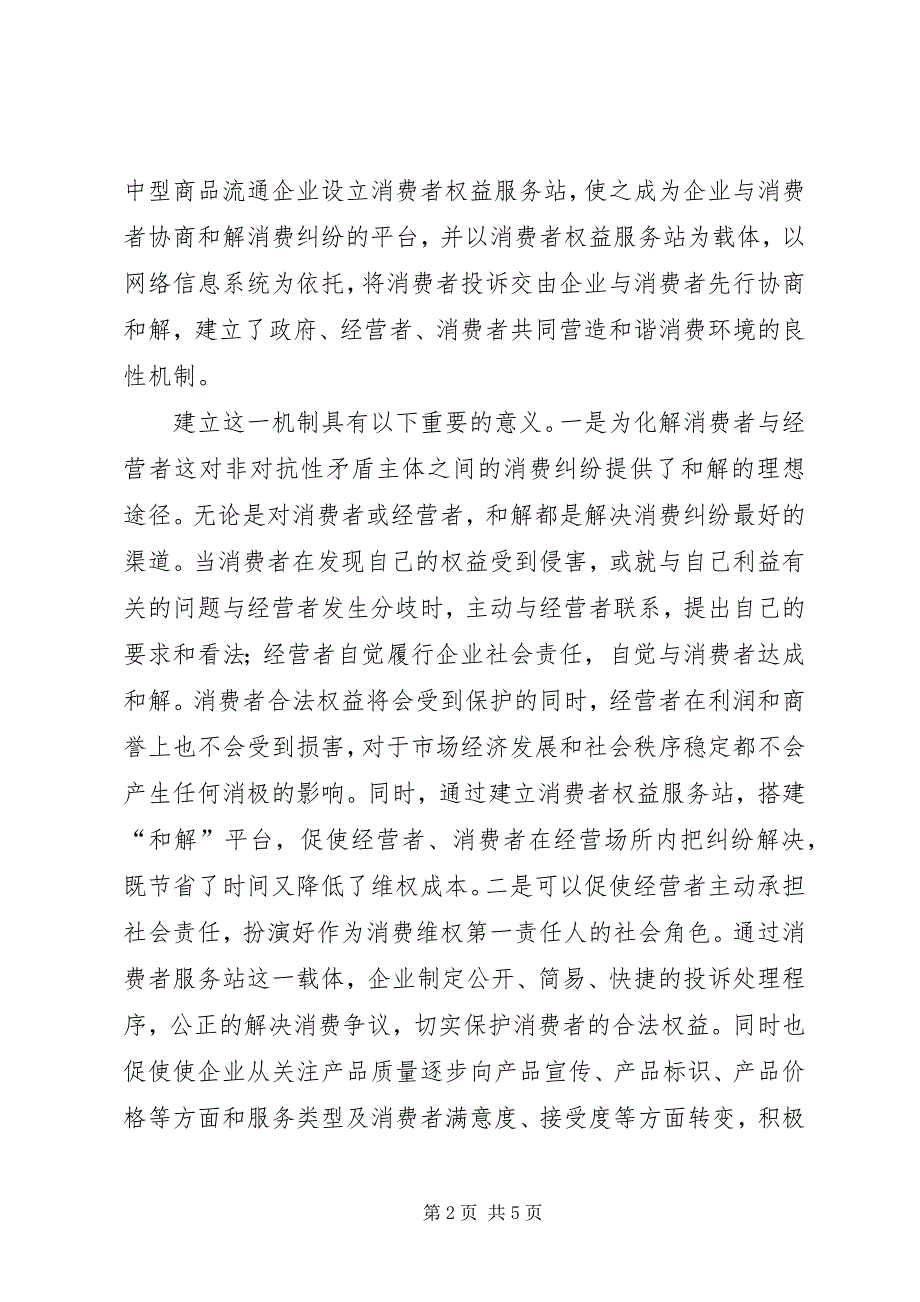 中型商品流通企业设立消费者权益服务站，使之成为企业与消费
者协商和解消费纠纷的平台，并以消费者权益服务站为载体，以
网络信息系统为依托，将消费者投诉交由企业与消费者先行协商
和解，建立了政府、经营者、消费者共同营造和谐消费环境的良
性机制。
建立这一机制具有以下重要的意义。一是为化解消费者与经
营者这对非对抗性矛盾主体之间的消费纠纷提供了和解的理想
途径。无论是对消费者或经营者，和解都是解决消费纠纷最好的
渠道。当消费者在发现自己的权益受到侵害，或就与自己利益有
关的问题与经营者发生分歧时，主动与经营者联系，提出自己的
要求和看法；经营者自觉履行企业社会责任，自觉与消费者达成
和解。消费者合法权益将会受到保护的同时，经营者在利润和商
誉上也不会受到损害，对于市场经济发展和社会秩序稳定都不会
产生任何消极的影响。同时，通过建立消费者权益服务站，搭建
“和解”平台，促使经营者、消费者在经营场所内把纠纷解决，
既节省了时间又降低了维权成本。二是可以促使经营者主动承担
社会责任，扮演好作为消费维权第一责任人的社会角色。通过消
费者服务站这一载体，企业制定公开、简易、快捷的投诉处理程
序，公正的解决消费争议，切实保护消费者的合法权益。同时也
促使使企业从关注产品质量逐步向产品宣传、产品标识、产品价
格等方面和服务类型及消费者满意度、接受度等方面转变，积极
第 2 页 共 5 页